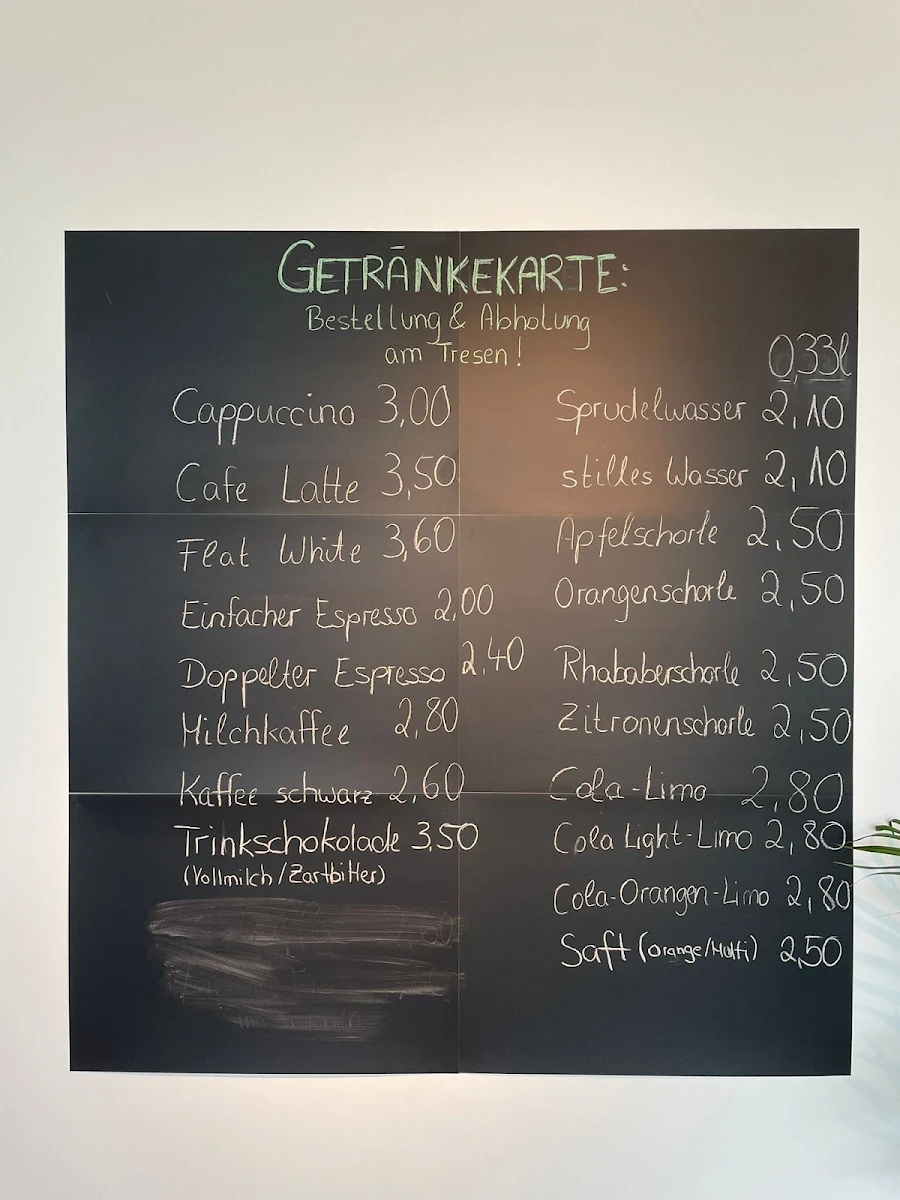 GETRÄNKEKARTE:
Bestellung & Abholung
am Tresen!
Cappuccino 3,00
Cafe Latte 3,50
Flat White 3,60
Einfacher Espresso 2,00
Doppelter Espresso 2,40
Milchkaffee 2,80
Kaffee schwarz 2,60
Trinkschokolade 3,50
(Vollmilch/Zartbitter)
0,33l
Sprudelwasser 2,10
stilles Wasser 2,10
Apfelschorle 2,50
Orangenschorle 2,50
Rhababerschorle 2,50
Zitronenschorle 2,50
Cola-Limo 2,80
Cola Light-Limo 2,80
Cola-Orangen-Limo 2,80
Saft (Orange/Multi) 2,50